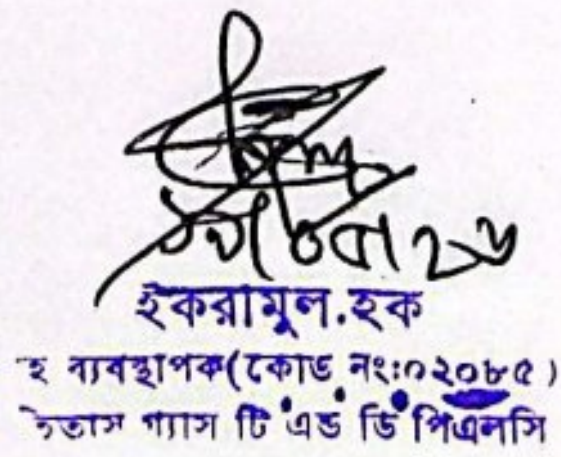 ইকরামুল.হক
হ ব্যবস্থাপক(কোড নং:০২০৮৫)
তিতাস গ্যাস টি এন্ড ডি পিএলসি